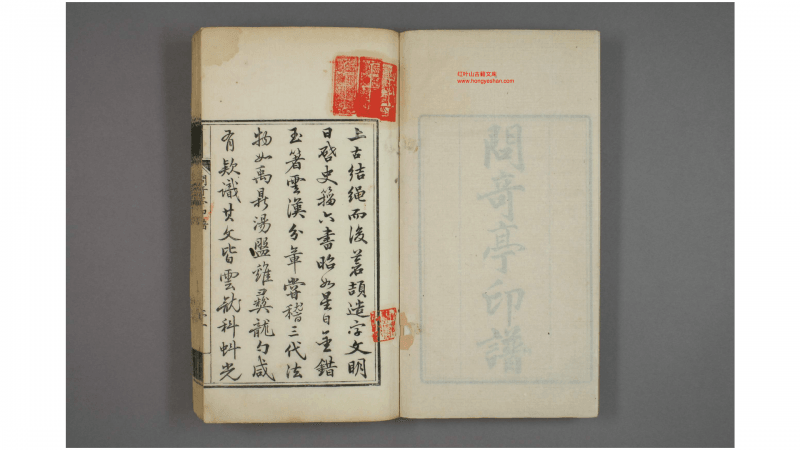 红叶山古籍文库
www.hongyeshan.com
問奇亭印譜
上古結繩而後蒼頡造字文明
日啓史籀六書昭如星日金錯
玉箸雲漢分章嘗稽三代法
物如禹鼎湯盤雞彝龍勺咸
有欵識其文皆雲科蚪光
問奇亭印譜